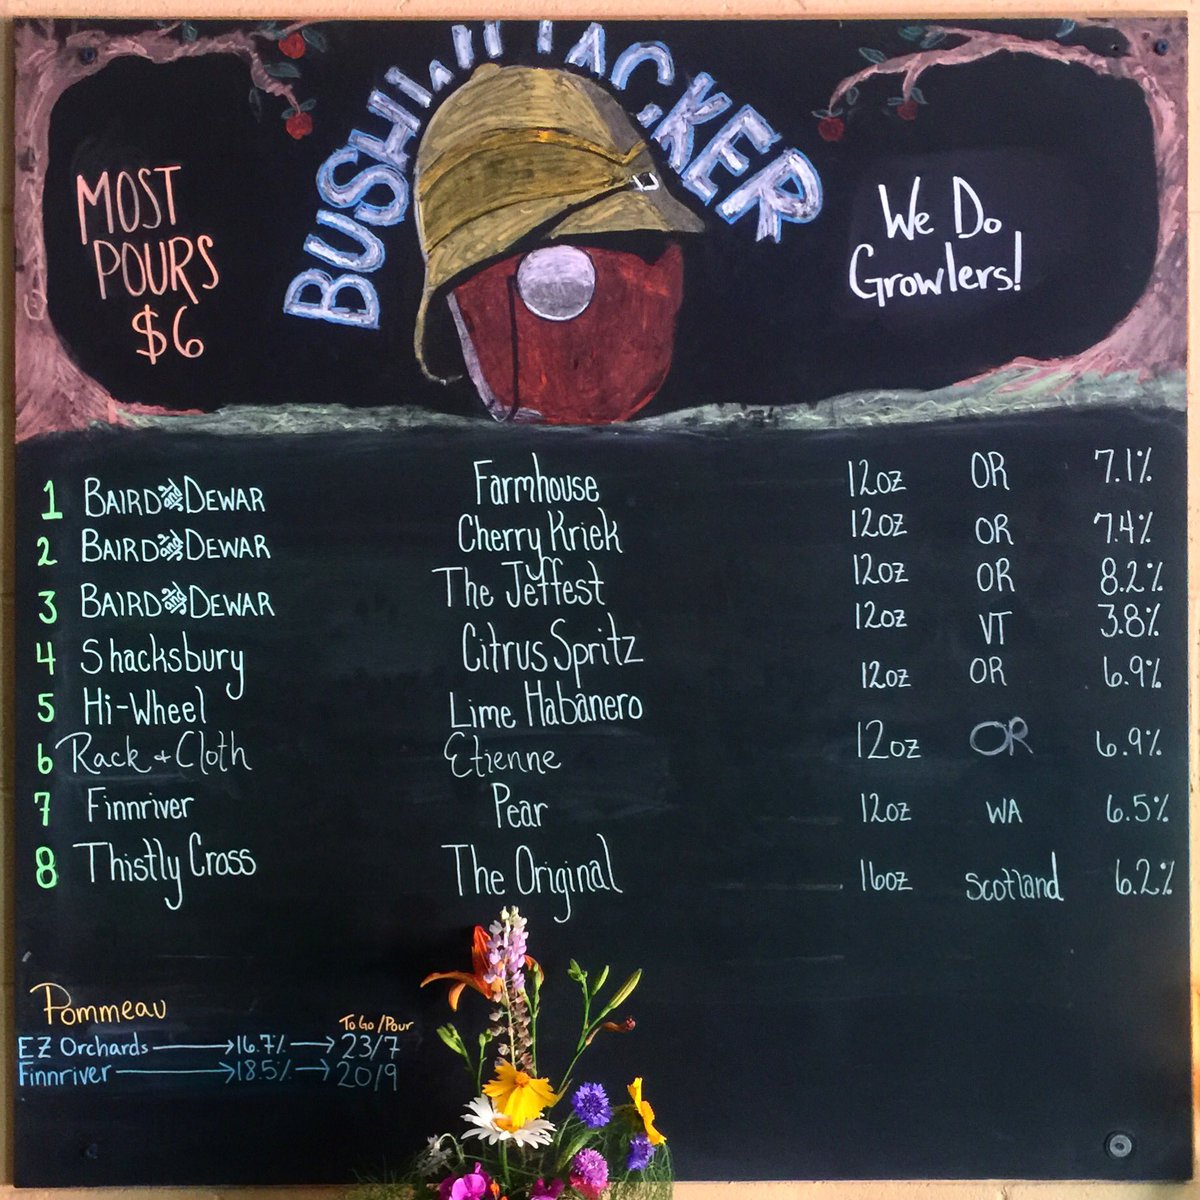 BUSHWHACKER
MOST
POURS
$6
We Do
Growlers!
1 BAIRD and DEWAR Farmhouse 12oz OR 7.1%
2 BAIRD and DEWAR Cherry Kriek 12oz OR 7.4%
3 BAIRD and DEWAR The Jeffest 12oz OR 8.2%
4 Shacksbury Citrus Spritz 12oz VT 3.8%
5 Hi-Wheel Lime Habanero 12oz OR 6.9%
6 Rack + Cloth Etienne 12oz OR 6.9%
7 Finnriver Pear 12oz WA 6.5%
8 Thistly Cross The Original 16oz Scotland 6.2%
Pommeau
To Go/Pour
EZ Orchards → 16.7% → 23/7
Finnriver → 18.5% → 20/9